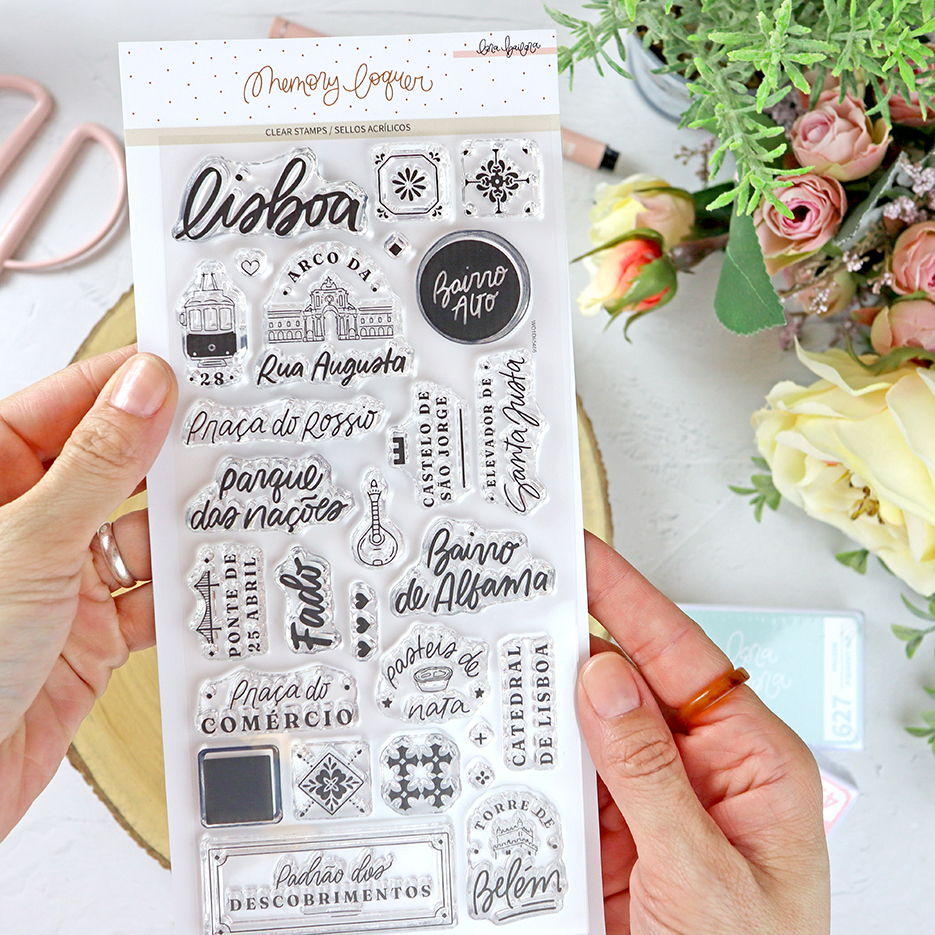 lora bailora
Memory loquer
CLEAR STAMPS / SELLOS ACRÍLICOS
lisboa
28
ARCO DA
Rua Augusta
Bairro
Alto
Praça do Rossio
CASTELO DE
SÃO JORGE
ELEVADOR DE
Santa Justa
parque
das nações
Bairro
de Alfama
PONTE DE
25 ABRIL
Fado
pasteis de
nata
Praça do
COMÉRCIO
CATEDRAL
DE LISBOA
TORRE DE
Belém
Padrão dos
DESCOBRIMENTOS
lora
627